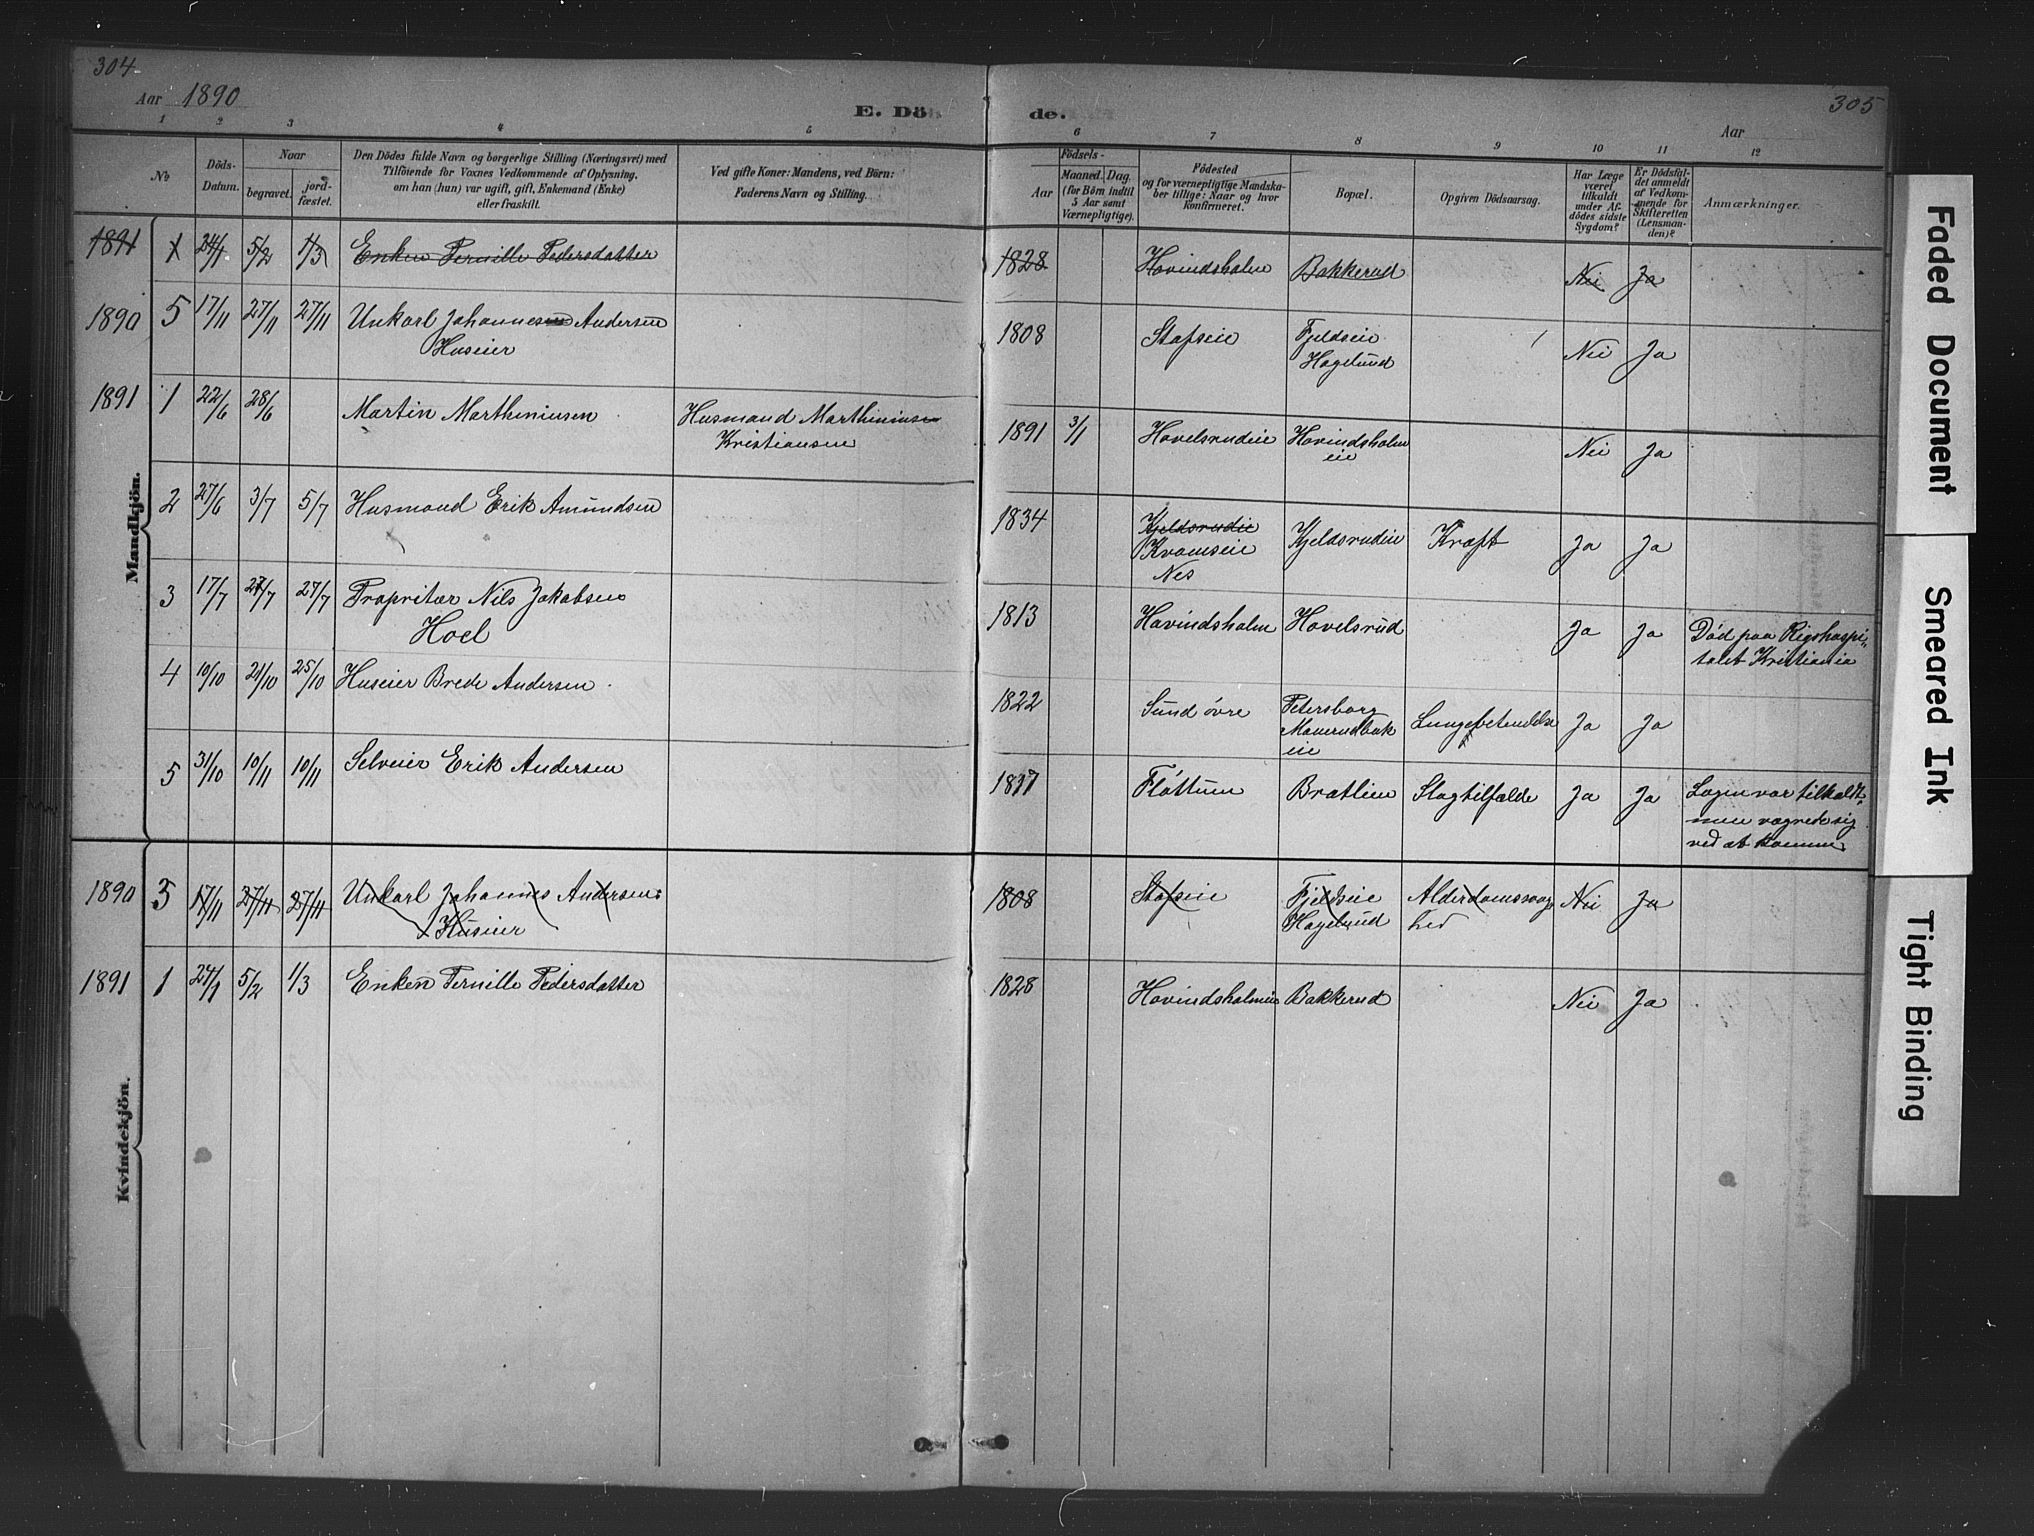 304
Aar 1890
E. Dö
de.
305
Aar
1 2 3 4 5 6 7 8 9 10 11 12
No
Döds-
Datum.
Naar
begravet.
jord-
fæstet.
Den Dödes fulde Navn og borgerlige Stilling (Næringsvei) med
Tilföiende for Voxnes Vedkommende af Oplysning,
om han (hun) var ugift, gift, Enkemand (Enke)
eller fraskilt.
Ved gifte Koner: Mandens, ved Börn:
Faderens Navn og Stilling.
Födsels-
Aar
Maaned. Dag.
(for Börn indtil
5 Aar samt
Værnepligtige).
Födested
og for værnepligtige Mandska-
ber tillige: Naar og hvor
konfirmeret.
Bopæl.
Opgiven Dödsaarsag.
Har Læge
været
tilkaldt
under Af-
dödes sidste
Sygdom?
Er Dödsfal-
det anmeldt
af Vedkom-
mende for
Skifteretten
(Lensman-
den)?
Anmærkninger.
Mandkjön.
1891 1 24/1 5/2 1/3 Enken Pernille Pedersdatter 1828 Hovindsholm Bakkerud Nei Ja
1890 5 17/11 27/11 27/11 Unkarl Johannesen Andersen 1808 Stafseie Fjeldseie Nei Ja
Huseier Hagelund
1891 1 22/6 28/6 Martin Marthiniusen Husmand Marthiniusen 1891 3/1 Hovelsrudeie Hovindsholm Nei Ja
Kristiansen eie
2 27/6 3/7 5/7 Husmand Erik Amundsen 1834 Kjeldsrudeie Kjeldsrudeie Kræft Ja Ja
Kvamseie
Nes
3 17/7 27/7 27/7 Propritær Nils Jakobsen 1813 Hovindsholm Hovelsrud Ja Ja Död paa Rigshospi-
Hoel talet Kristiania
4 19/10 21/10 25/10 Huseier Brede Andersen 1822 Sund övre Petersborg Lungebetendelse Ja Ja
eie
5 31/10 10/11 10/11 Selveier Erik Andersen 1817 Flöttum Brætlien Slagtilfælde Ja Ja Lægen var tilkaldt,
men vægrede sig
ved at komme
Kvindekjön.
1890 3 17/11 27/11 27/11 Unkarl Johannes Andersen 1808 Stafseie Fjeldseie Alderdomssvag Nei Ja
Huseier Hagelund hed
1891 1 24/1 5/2 1/3 Enken Pernille Pedersdatter 1828 Hovindsholmeie Bakkerud Nei Ja
Faded Document
Smeared Ink
Tight Binding